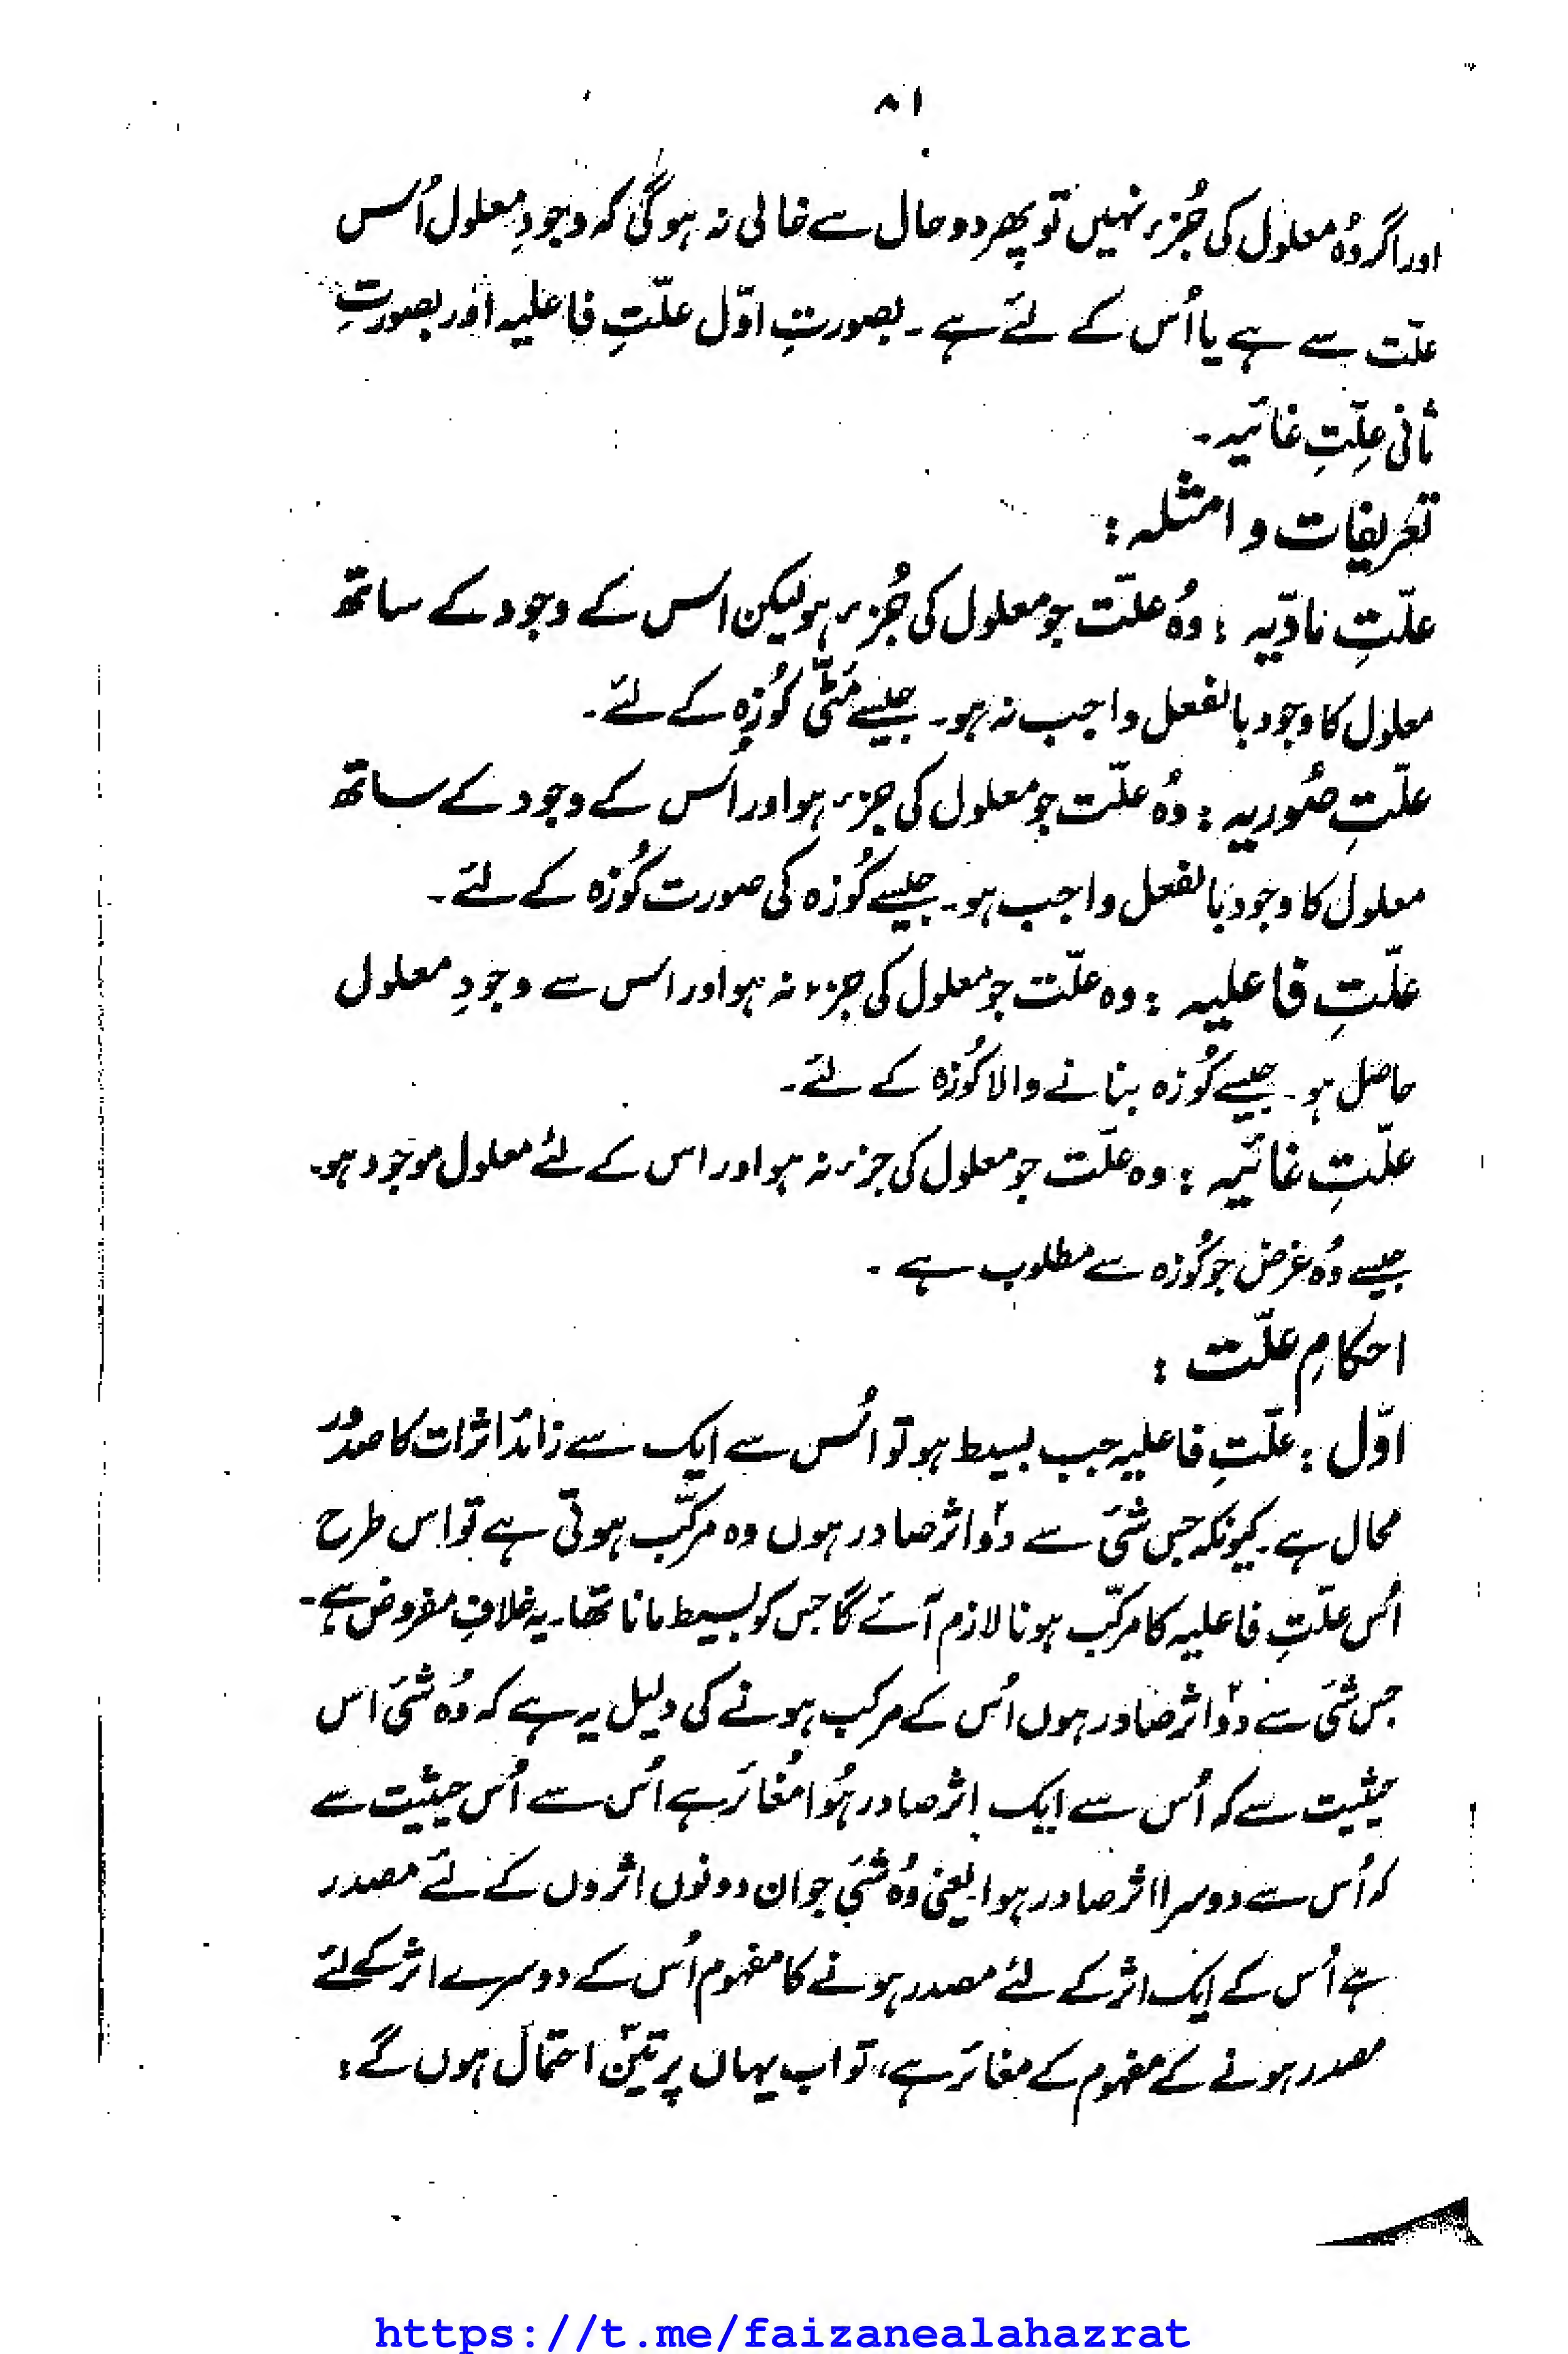 ۸۱
اور اگر وُہ معلول کی جُزء نہیں تو پھر دو حال سے خالی نہ ہوگی کہ وجودِ معلول اُس
علّت سے ہے یا اُس کے لئے ہے ۔ بصورتِ اوّل علّتِ فاعلیہ اور بصورتِ
ثانی علّتِ غائیہ ۔
تعریفات و امثلہ :
علّتِ مادّیہ : وُہ علّت جو معلول کی جُزء ہو لیکن اس کے وجود کے ساتھ
معلول کا وجود بالفعل واجب نہ ہو۔ جیسے مَٹّی کُوزہ کے لئے ۔
علّتِ صُوریہ : وُہ علّت جو معلول کی جزء ہو اور اُس کے وجود کے ساتھ
معلول کا وجود بالفعل واجب ہو۔ جیسے کُوزہ کی صورت کُوزہ کے لئے ۔
علّتِ فاعلیہ : وہ علّت جو معلول کی جزء نہ ہو اور اس سے وجودِ معلول
حاصل ہو۔ جیسے کُوزہ بنانے والا کُوزہ کے لئے ۔
علّتِ غائیہ : وہ علّت جو معلول کی جزء نہ ہو اور اس کے لئے معلول موجود ہو۔
جیسے وُہ غرض جو کُوزہ سے مطلوب ہے ۔
احکامِ علّت :
اوّل : علّتِ فاعلیہ جب بسیط ہو تو اُس سے ایک سے زائد اثرات کا صدور
محال ہے۔ کیونکہ جس شئی سے دو اثر صادر ہوں وہ مرکّب ہوتی ہے تو اس طرح
اُس علّتِ فاعلیہ کا مرکّب ہونا لازم آئے گا جس کو بسیط مانا تھا۔ یہ خلافِ مفروض ہے ۔
جس شئی سے دو اثر صادر ہوں اُس کے مرکب ہونے کی دلیل یہ ہے کہ وُہ شئی اس
حیثیت سے کہ اُس سے ایک اثر صادر ہُوا مُغائر ہے اُس سے اُس حیثیت سے
کہ اُس سے دوسرا اثر صادر ہوا۔ یعنی وُہ شئی جو ان دونوں اثروں کے لئے مصدر
ہے اُس کے ایک اثر کے لئے مصدر ہونے کا مفہوم اُس کے دوسرے اثر کے لئے
مصدر ہونے کے مفہوم کے مغائر ہے، تو اب یہاں پر تین احتمال ہوں گے :
https://t.me/faizanealahazrat